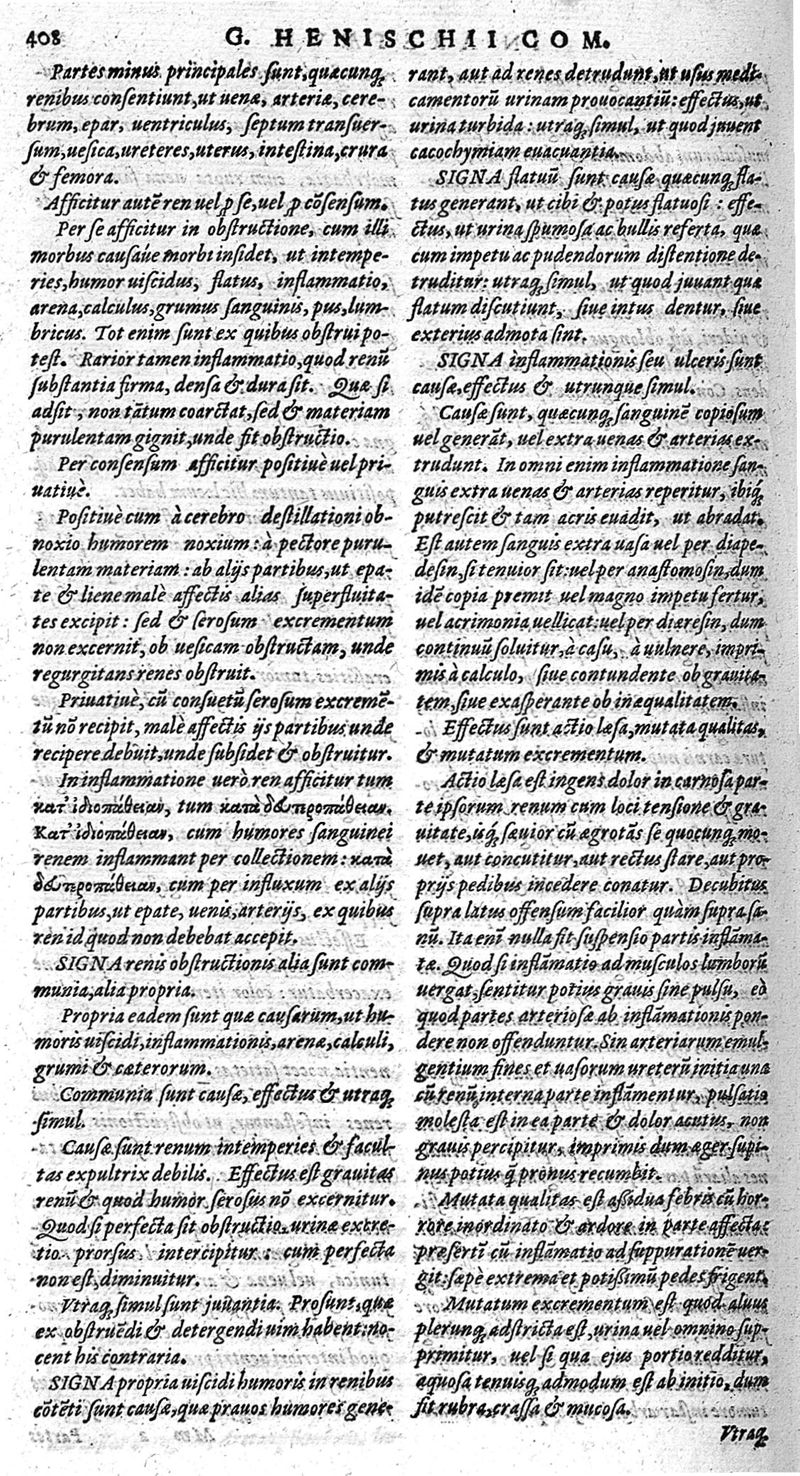 408
G. HENISCHII COM.
Partes minus principales sunt, quæcunq;
renibus consentiunt, ut uenæ, arteriæ, cere-
brum, epar, uentriculus, septum transuer-
sum, uesica, ureteres, uterus, intestina, crura
& femora.
Afficitur autē ren uel ꝑ se, uel ꝑ cōsensum.
Per se afficitur in obstructione, cum illi
morbus causaúe morbi insidet, ut intempe-
ries, humor uiscidus, flatus, inflammatio,
arena, calculus, grumus sanguinis, pus, lum-
bricus. Tot enim sunt ex quibus obstrui po-
test. Rarior tamen inflammatio, quod renū
substantia firma, densa & dura sit. Quæ si
adsit, non tātum coarctat, sed & materiam
purulentam gignit, unde fit obstructio.
Per consensum afficitur positiuè uel pri-
uatiuè.
Positiuè cum à cerebro destillationi ob-
noxio humorem noxium: à pectore puru-
lentam materiam: ab alijs partibus, ut epa-
te & liene malè affectis alias superfluita-
tes excipit: sed & serosum excrementum
non excernit, ob uesicam obstructam, unde
regurgitans renes obstruit.
Priuatiuè, cū consuetū serosum excremē-
tū nō recipit, malè affectis ijs partibus unde
recipere debuit, unde subsidet & obstruitur.
In inflammatione uerò ren afficitur tum
κατ᾽ ἰδιοπάθειαν, tum κατὰ δευτεροπάθειαν.
Κατ᾽ ἰδιοπάθειαν, cum humores sanguinei
renem inflammant per collectionem: κατὰ
δευτεροπάθειαν, cum per influxum ex alijs
partibus, ut epate, uenis, arterijs, ex quibus
ren id quod non debebat accepit.
SIGNA renis obstructionis alia sunt com-
munia, alia propria.
Propria eadem sunt quæ causarum, ut hu-
moris uiscidi, inflammationis, arenæ, calculi,
grumi & cæterorum.
Communia sunt causæ, effectus & utraq;
simul.
Causæ sunt renum intemperies & facul-
tas expultrix debilis. Effectus est grauitas
renū & quod humor serosus nō excernitur.
Quod si perfecta sit obstructio, urinæ excre-
tio prorsus intercipitur: cum perfecta
non est, diminuitur.
Vtraq; simul sunt juuantia. Prosunt, quæ
ex obstruēdi & detergendi uim habent: no-
cent his contraria.
SIGNA propria uiscidi humoris in renibus
cōtēti sunt causæ, quæ prauos humores gene-
rant, aut ad renes detrudunt, ut usus medi-
camentorū urinam prouocantiū: effectus, ut
urina turbida: utraq; simul, ut quod juuent
cacochymiam euacuantia.
SIGNA flatuū sunt causæ quæcunq; fla-
tus generant, ut cibi & potus flatuosi: effe-
ctus, ut urina spumosa ac bullis referta, quæ
cum impetu ac pudendorum distentione de-
truditur: utraq; simul, ut quod juuant quæ
flatum discutiunt, siue intus dentur, siue
exterius admota sint.
SIGNA inflammationis seu ulceris sunt
causæ, effectus & utrunque simul.
Causæ sunt, quæcunq; sanguinē copiosum
uel generāt, uel extra uenas & arterias ex-
trudunt. In omni enim inflammatione san-
guis extra uenas & arterias reperitur, ibiq́;
putrescit & tam acris euadit, ut abradat.
Est autem sanguis extra uasa uel per diape-
desin, si tenuior sit: uel per anastomosin, dum
idē copia premit uel magno impetu fertur,
uel acrimonia uellicat: uel per diæresin, dum
continuū soluitur, à casu, à uulnere, impri-
mis à calculo, siue contundente ob grauita-
tem, siue exasperante ob inæqualitatem.
Effectus sunt actio læsa, mutata qualitas,
& mutatum excrementum.
Actio læsa est ingens dolor in carnosa par-
te ipsorum renum cum loci tensione & gra-
uitate, isq́; sæuior cū ægrotās se quocunq; mo-
uet, aut concutitur, aut rectus stare, aut pro-
prijs pedibus incedere conatur. Decubitus
supra latus offensum facilior quàm supra sa-
nū. Ita enī nulla fit suspensio partis inflāma-
tæ. Quod si inflāmatio ad musculos lumborū
uergat, sentitur potius grauis sine pulsu, eò
quod partes arteriosæ ab inflāmationis pon-
dere non offenduntur. Sin arteriarum emul-
gentium fines et uasorum ureterū initia una
cū renū interna parte inflāmentur, pulsatio
molesta est in ea parte & dolor acutus, non
grauis percipitur, imprimis dum æger supi-
nus potius q̄ pronus recumbit.
Mutata qualitas est aßidua febris cū hor-
rore inordinato & ardore in parte affecta:
præsertī cū inflāmatio ad suppurationē uer-
git: sæpè extrema et potißimū pedes frigent.
Mutatum excrementum est quod aluus
plerunq; adstricta est, urina uel omnino sup-
primitur, uel si qua ejus portio redditur,
aquosa tenuisq; admodum est ab initio, dum
fit rubra, crassa & mucosa.
Vtraq;